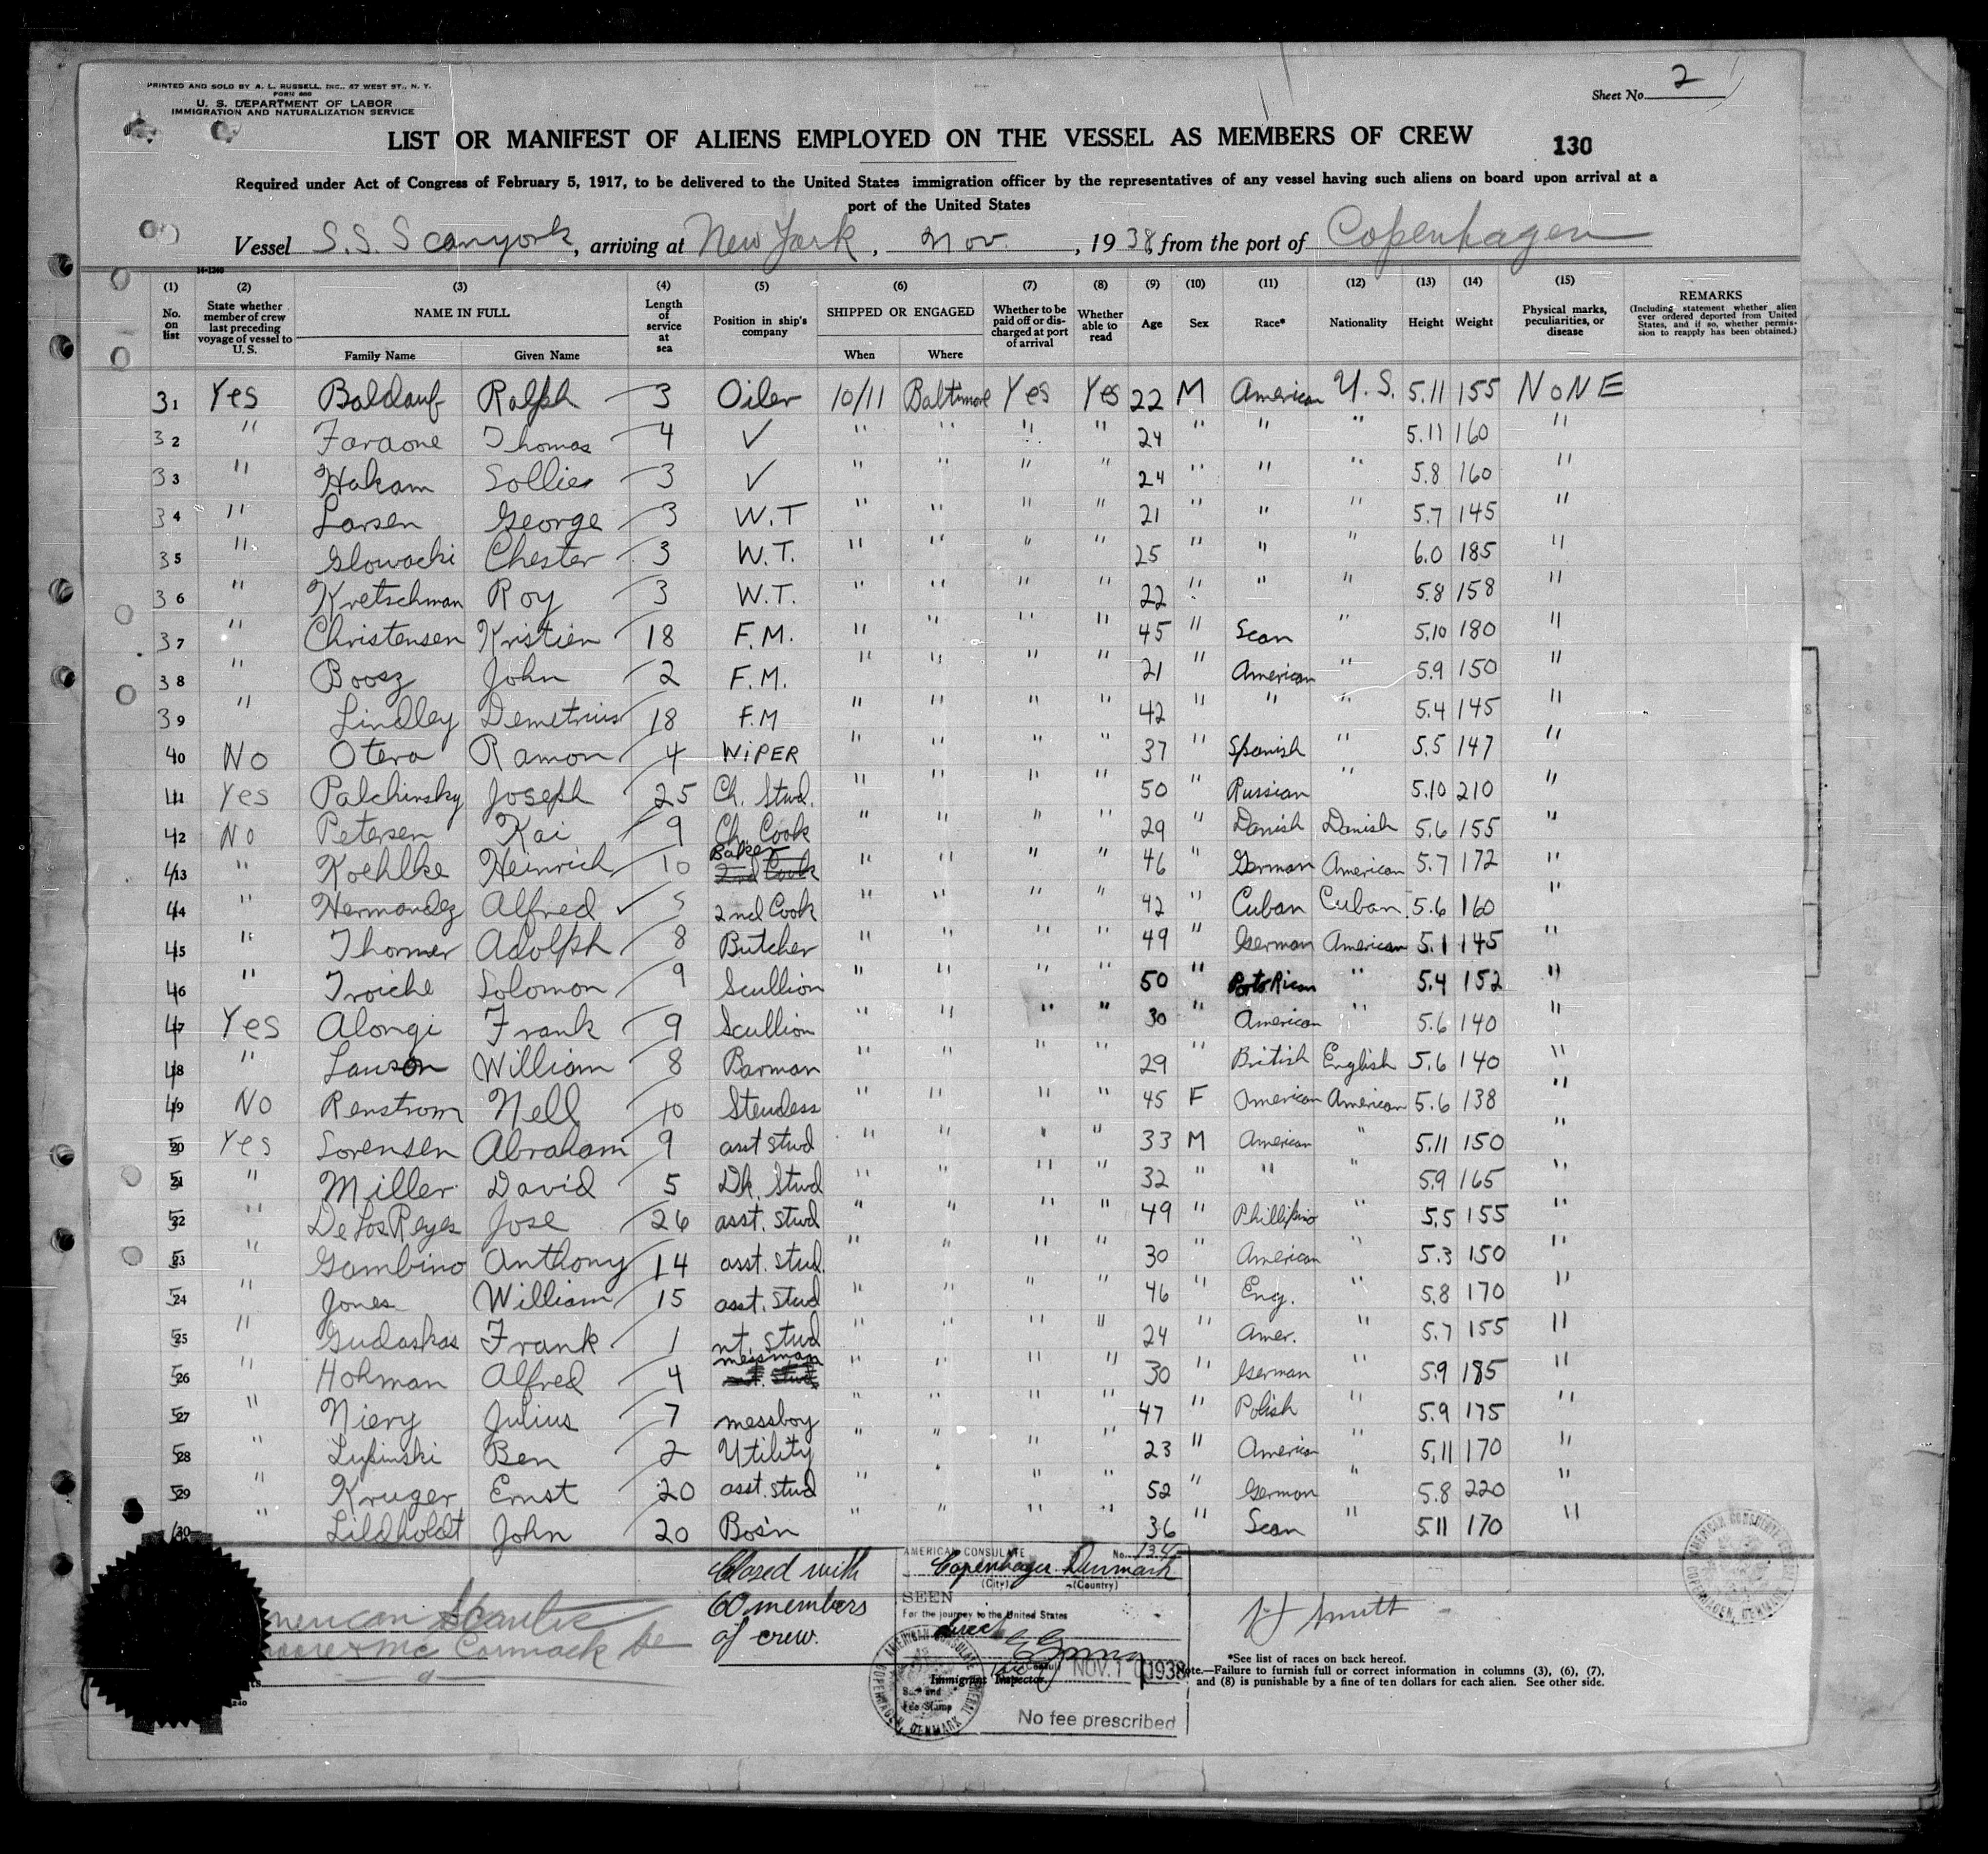 PRINTED AND SOLD BY A. L. RUSSELL, INC., 47 WEST ST., N. Y.
FORM 680
U. S. DEPARTMENT OF LABOR
IMMIGRATION AND NATURALIZATION SERVICE
Sheet No. 2
LIST OR MANIFEST OF ALIENS EMPLOYED ON THE VESSEL AS MEMBERS OF CREW 130
Required under Act of Congress of February 5, 1917, to be delivered to the United States immigration officer by the representatives of any vessel having such aliens on board upon arrival at a
port of the United States
Vessel S.S. Scanyork, arriving at New York, Nov., 1938, from the port of Copenhagen
14-1240
(1) No. on list (2) State whether member of crew last preceding voyage of vessel to U. S. (3) NAME IN FULL Family Name Given Name (4) Length of service at sea (5) Position in ship's company (6) SHIPPED OR ENGAGED When Where (7) Whether to be paid off or discharged at port of arrival (8) Whether able to read (9) Age (10) Sex (11) Race* (12) Nationality (13) Height (14) Weight (15) Physical marks, peculiarities, or disease REMARKS (Including statement whether alien ever ordered deported from United States, and if so, whether permission to reapply has been obtained.)
31 Yes Baldauf Ralph 3 Oiler 10/11 Baltimore Yes Yes 22 M American U.S. 5.11 155 NONE
32 " Faraone Thomas 4 ✓ " " " " 24 " " " 5.11 160 "
33 " Hakam Sollie 3 ✓ " " " " 24 " " " 5.8 160 "
34 " Larsen George 3 W.T " " " " 21 " " " 5.7 145 "
35 " Glowacki Chester 3 W.T. " " " " 25 " " " 6.0 185 "
36 " Kretschman Roy 3 W.T. " " " " 22 " " " 5.8 158 "
37 " Christensen Kristien 18 F.M. " " " " 45 " Scan " 5.10 180 "
38 " Boosz John 2 F.M. " " " " 21 " American " 5.9 150 "
39 " Lindley Demetrius 18 F.M " " " " 42 " " " 5.4 145 "
40 No Otero Ramon 4 WiPER " " " " 37 " Spanish " 5.5 147 "
41 Yes Palchinsky Joseph 25 Ch. Stwd. " " " " 50 " Russian " 5.10 210 "
42 No Petersen Kai 9 Ch. Cook " " " " 29 " Danish Danish 5.6 155 "
43 " Koehlke Heinrich 10 Baker 2nd Cook " " " " 46 " German American 5.7 172 "
44 " Hernandez Alfred ✓ 5 2nd Cook " " " " 42 " Cuban Cuban 5.6 160 "
45 " Thormer Adolph 8 Butcher " " " " 49 " German American 5.1 145 "
46 " Troiche Solomon 9 Scullion " " " " 50 " Porto Rican " 5.4 152 "
47 Yes Alongi Frank 9 Scullion " " " " 30 " American " 5.6 140 "
48 " Lawson William 8 Barman " " " " 29 " British English 5.6 140 "
49 No Renstrom Nell 10 Stewdess " " " " 45 F American American 5.6 138 "
50 Yes Sorensen Abraham 9 asst stwd " " " " 33 M American " 5.11 150 "
51 " Miller David 5 Dk. Stwd " " " " 32 " " " 5.9 165 "
52 " De Los Reyes Jose 26 asst. stwd " " " " 49 " Phillipino " 5.5 155 "
53 " Gambino Anthony 14 asst. stwd. " " " " 30 " American " 5.3 150 "
54 " Jones William 15 asst. stwd " " " " 46 " Eng. " 5.8 170 "
55 " Gudaskas Frank 1 nt. stwd " " " " 24 " Amer. " 5.7 155 "
56 " Hohman Alfred 4 messman " " " " 30 " German " 5.9 185 "
57 " Niery Julius 7 messboy " " " " 47 " Polish " 5.9 175 "
58 " Lupinski Ben 2 Utility " " " " 23 " American " 5.11 170 "
59 " Kruger Ernst 20 asst. stwd " " " " 52 " German " 5.8 220 "
" Lildholdt John 20 Bos'n " " " " 36 " Scan " 5.11 170 "
Closed with
60 members
of crew.
AMERICAN CONSULATE No. 134
Copenhagen Denmark
(City) (Country)
SEEN
For the journey to the United States
direct
NOV. 1 1938
Immigrant Inspector.
Seal and
Fee Stamp
No fee prescribed
AMERICAN CONSULATE GENERAL
COPENHAGEN, DENMARK
merican Scantic
oore & Mc Cormack
*See list of races on back hereof.
Note.—Failure to furnish full or correct information in columns (3), (6), (7),
and (8) is punishable by a fine of ten dollars for each alien. See other side.
AMERICAN CONSULATE GENERAL
COPENHAGEN, DENMARK